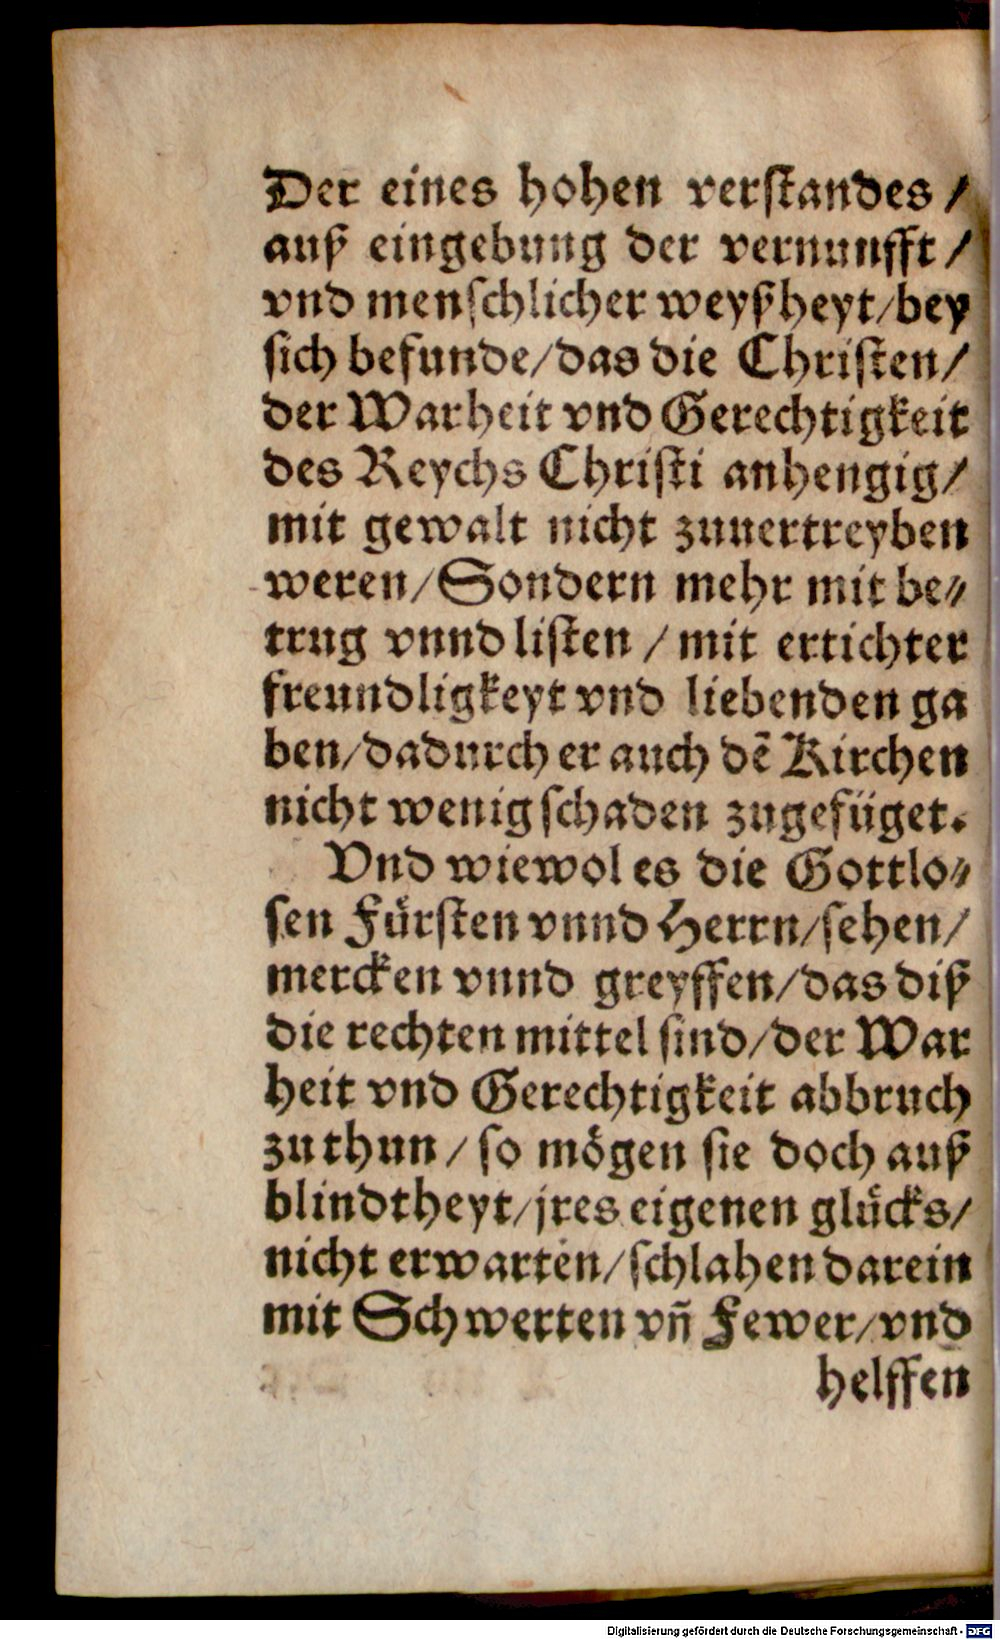 Der eines hohen verſtandes /
auß eingebung der vernunfft /
vnd menſchlicher weyßheyt/bey
ſich befunde/das die Chriſten/
der Warheit vnd Gerechtigkeit
des Reychs Chriſti anhengig/
mit gewalt nicht zuuertreyben
weren/Sondern mehr mit be⸗
trug vnnd liſten / mit ertichter
freundligkeyt vnd liebenden ga
ben/dadurch er auch dẽ Kirchen
nicht wenig ſchaden zugefüget.
Vnd wiewol es die Gottlo⸗
ſen Fuͤrſten vnnd Herrn/ſehen/
mercken vnnd greyffen/das diß
die rechten mittel ſind/der War
heit vnd Gerechtigkeit abbruch
zu thun / ſo moͤgen ſie doch auß
blindtheyt/jres eigenen gluͤcks/
nicht erwarten/ſchlahen darein
mit Schwerten vñ Fewer/vnd
helffen
Digitalisierung gefördert durch die Deutsche Forschungsgemeinschaft - DFG